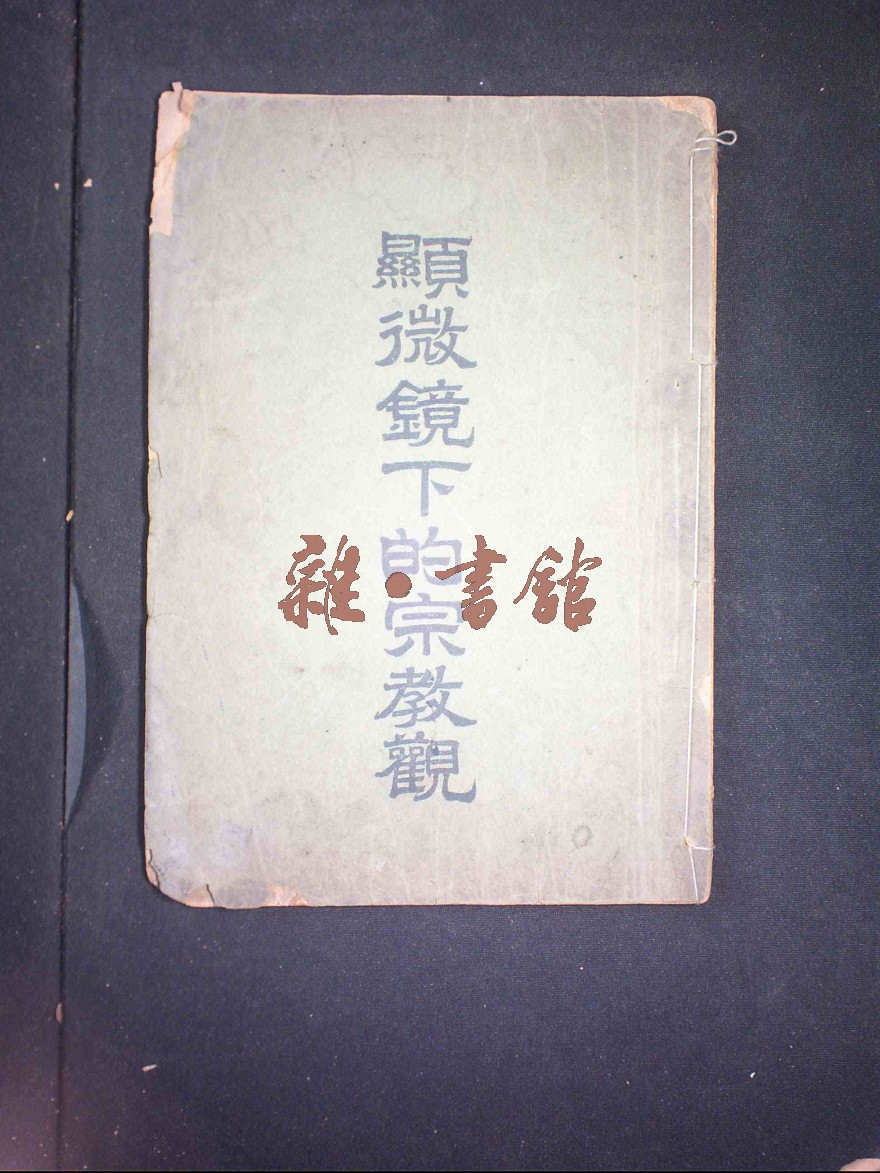 顯微鏡下的宗教觀
雜·書館